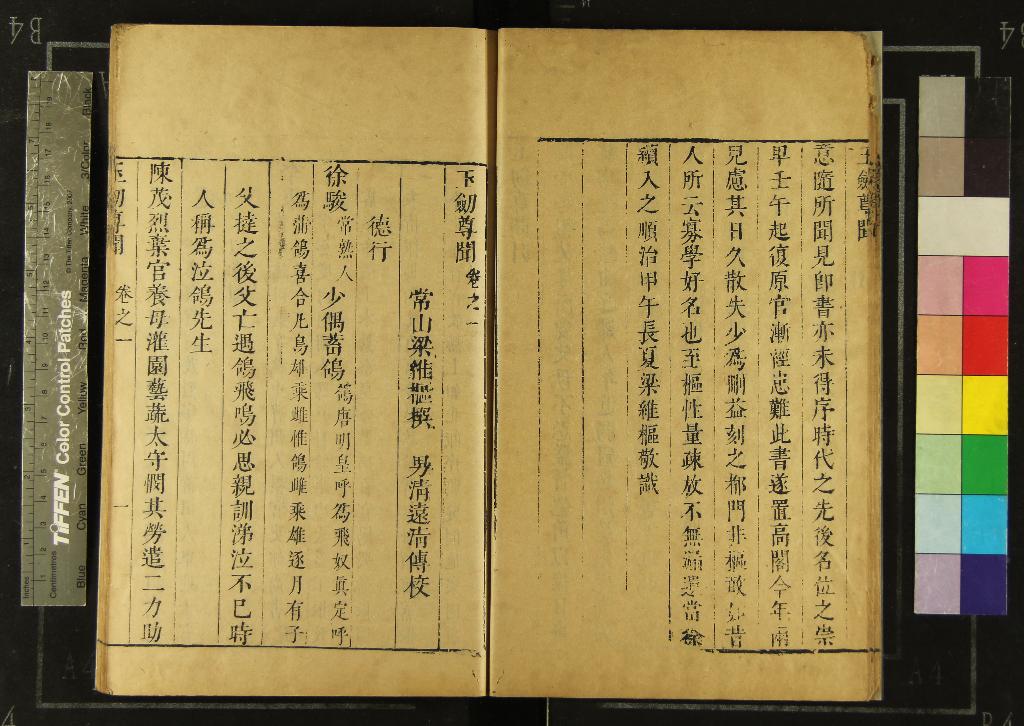 玉劒尊聞
意隨所聞見卽書亦未得序時代之先後名位之崇
卑壬午起復原官漸經患難此書遂置高閣今年兩
兒慮其日久散失少爲刪益刻之柳門非樞敢如昔
人所云寡學好名也至樞性量疎放不無漏遺當徐
續入之順治甲午長夏梁維樞敬識
玉劒尊聞卷之一
常山梁維樞撰 男清遠清傳校
德行
徐駿常熟人少偶蓄鴿鴿唐明皇呼爲飛奴眞定呼
爲蒲鴿喜合凡鳥雄乘雌惟鴿雌乘雄逐月有子
父撻之後父亡遇鴿飛鳴必思親訓涕泣不已時
人稱爲泣鴿先生
陳茂烈棄官養母灌園藝蔬太守憫其勞遣二力助
玉劒尊聞 卷之一 一
TIFFEN Color Control Patches
© The Tiffen Company, 2007
Inches
Centimetres
Blue Cyan Green Yellow Red Magenta White 3/Color Black
B4
A4